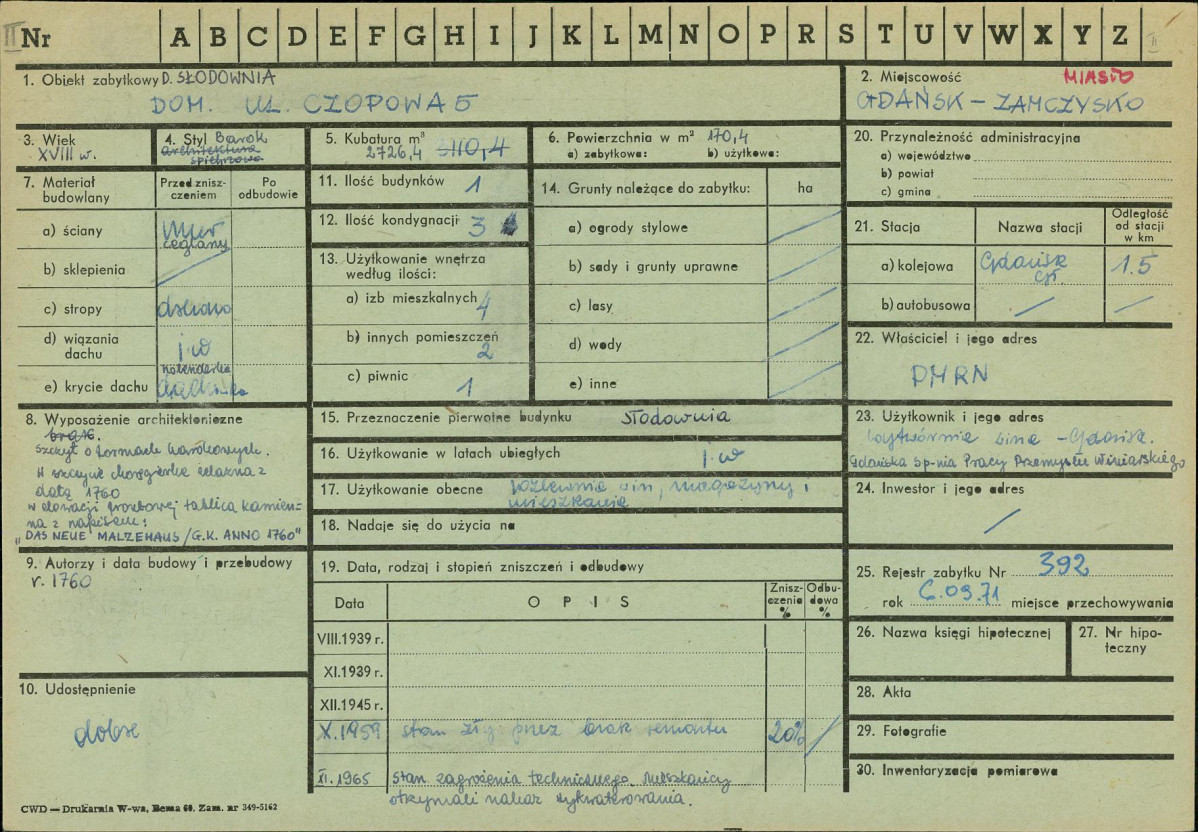 II Nr A B C D E F G H I J K L M N O P R S T U V W X Y Z II
1. Obiekt zabytkowy D. SŁODOWNIA
DOM. UL. CZOPOWA 5
2. Miejscowość MIASTO
GDAŃSK – ZAMCZYSKO
3. Wiek
XVIII w.
4. Styl Barok
architektura
spichrzowa
5. Kubatura m³
2726,4
6. Powierzchnia w m² 170,4
a) zabytkowa: b) użytkowa:
7. Materiał
budowlany
Przed znisz-
czeniem
Po
odbudowie
a) ściany
mur
ceglany
b) sklepienia
c) stropy
d) wiązania
dachu
j.w
e) krycie dachu
holenderka
8. Wyposażenie architektoniczne
brak.
szczyt o formach barokowych.
W szczycie chorągiewka żelazna z
datą 1760
w elewacji frontowej tablica kamien-
na z napisem:
"DAS NEUE MALZEHAUS/G.K. ANNO 1760"
9. Autorzy i data budowy i przebudowy
r. 1760
10. Udostępnienie
dobre
11. Ilość budynków 1
12. Ilość kondygnacji 3
13. Użytkowanie wnętrza
według ilości:
a) izb mieszkalnych 4
b) innych pomieszczeń
2
c) piwnic 1
14. Grunty należące do zabytku: ha
a) ogrody stylowe
b) sady i grunty uprawne
c) lasy
d) wody
e) inne
15. Przeznaczenie pierwotne budynku słodownia
16. Użytkowanie w latach ubiegłych j.w
17. Użytkowanie obecne rozlewnia win, magazyny i
mieszkania
18. Nadaje się do użycia na
19. Data, rodzaj i stopień zniszczeń i odbudowy
Data OPIS Znisz-
czenia
%
Odbu-
dowa
%
VIII.1939 r.
XI.1939 r.
XII.1945 r.
X.1959 stan zły przez brak remontu 20%
XI.1965 stan zagrożenia technicznego. Mieszkańcy
otrzymali nakaz wykwaterowania.
20. Przynależność administracyjna
a) województwo
b) powiat
c) gmina
21. Stacja Nazwa stacji Odległość
od stacji
w km
a) kolejowa Gdańsk
Gł. 1.5
b) autobusowa
22. Właściciel i jego adres
PMRN
23. Użytkownik i jego adres
Wytwórnia wina – Gdańsk.
Gdańska Sp-nia Pracy Przemysłu Winiarskiego
24. Inwestor i jego adres
25. Rejestr zabytku Nr 392
rok 6.09.71 miejsce przechowywania
26. Nazwa księgi hipotecznej
27. Nr hipo-
teczny
28. Akta
29. Fotografie
30. Inwentaryzacja pomiarowa
CWD — Drukarnia W-wa, Bema 60. Zam. nr 349-5162